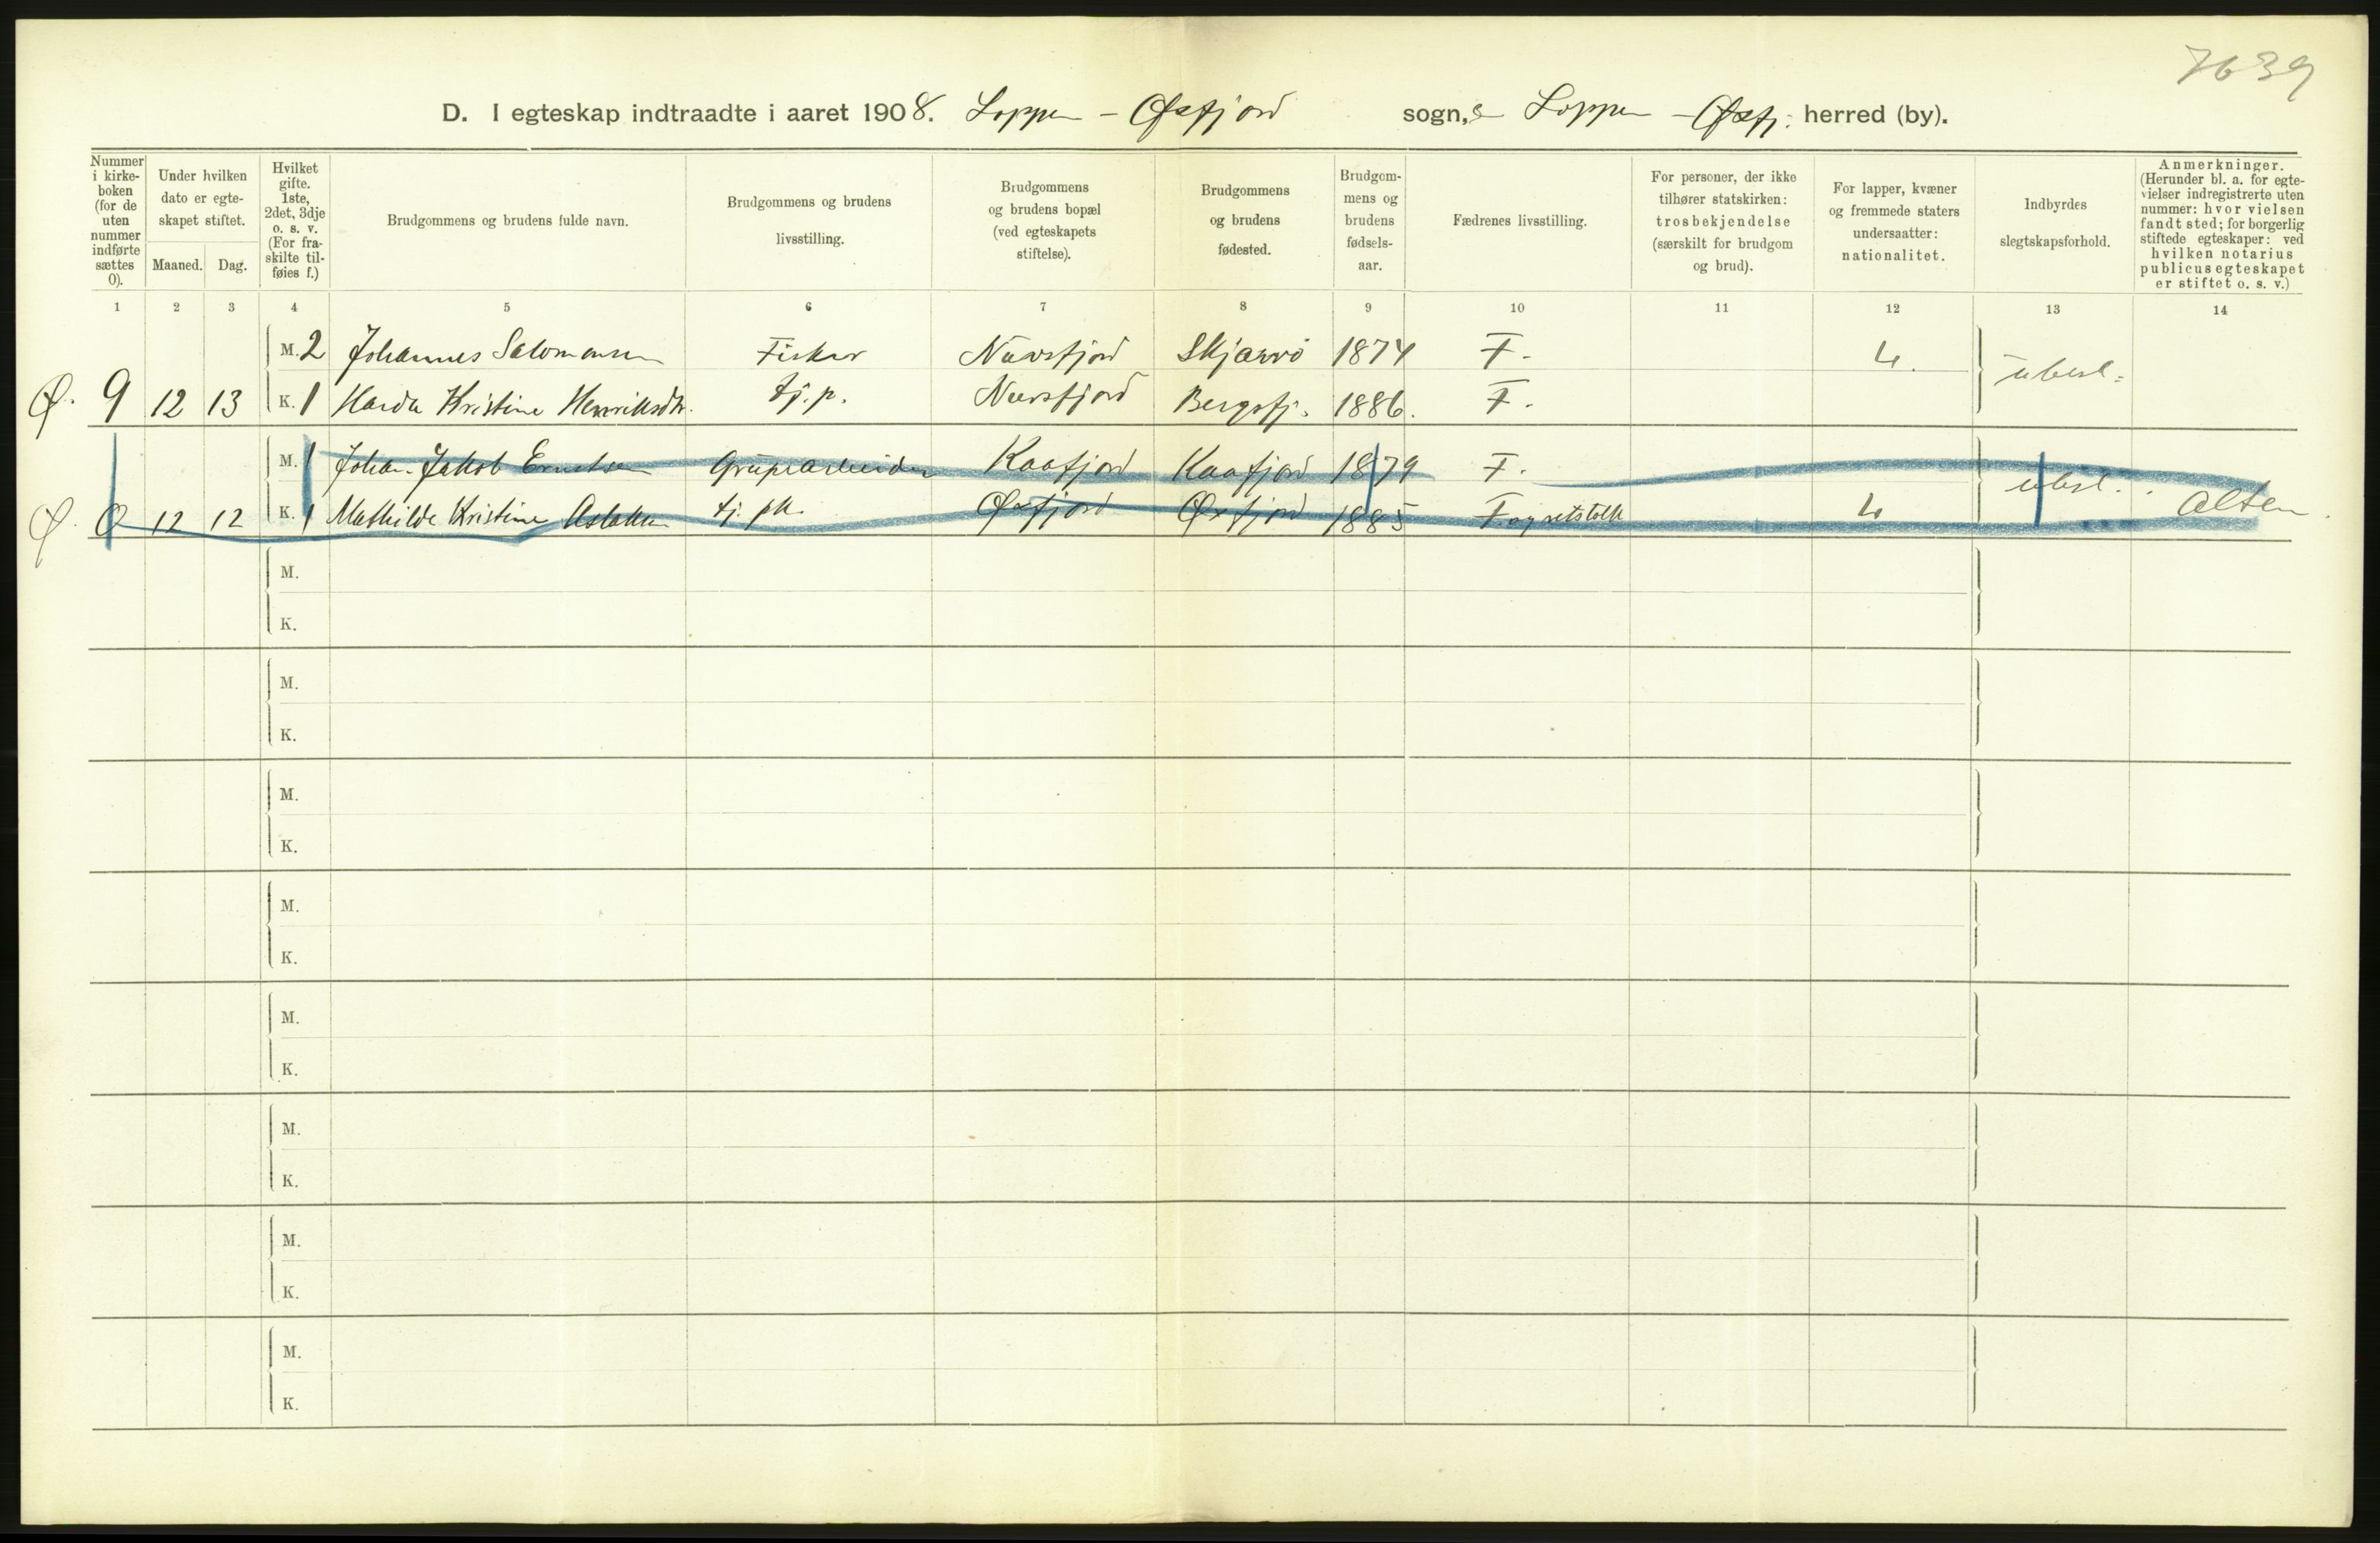 7639
D. I egteskap indtraadte i aaret 1908. Loppen - Øxfjord sogn,e Loppen - Øxfj: herred (by).
Nummer i kirke-boken (for de uten nummer indførte sættes 0).
Under hvilken dato er egte-skapet stiftet.
Maaned. Dag.
Hvilket gifte. 1ste, 2det, 3dje o. s. v. (For fra-skilte til-føies f.)
Brudgommens og brudens fulde navn.
Brudgommens og brudens livsstilling.
Brudgommens og brudens bopæl (ved egteskapets stiftelse).
Brudgommens og brudens fødested.
Brudgom-mens og brudens fødsels-aar.
Fædrenes livsstilling.
For personer, der ikke tilhører statskirken: trosbekjendelse (særskilt for brudgom og brud).
For lapper, kvæner og fremmede staters undersaatter: nationalitet.
Indbyrdes slegtskapsforhold.
Anmerkninger. (Herunder bl. a. for egte-vielser indregistrerte uten nummer: hvor vielsen fandt sted; for borgerlig stiftede egteskaper: ved hvilken notarius publicus egteskapet er stiftet o. s. v.)
1 2 3 4 5 6 7 8 9 10 11 12 13 14
M. 2 Johannes Salomonsen Fisker Nuvsfjord Skjærvö 1874 F. ubesl.
Ø. 9 12 13 K. 1 Kristine Henriksdtr. tj. p. Nuvsfjord Bergsfj. 1886. F.
M. 1 Johan Jakob Grubearbeider Kaafjord Kaafjord 1879 F. ubesl.
Ø. 0 12 12 K. 1 Mathilde Kristine Aslaksen tj. pk. Øxfjord Øxfjord 1885 F og retstolk Alten.
M.
K.
M.
K.
M.
K.
M.
K.
M.
K.
M.
K.
M.
K.
M.
K.